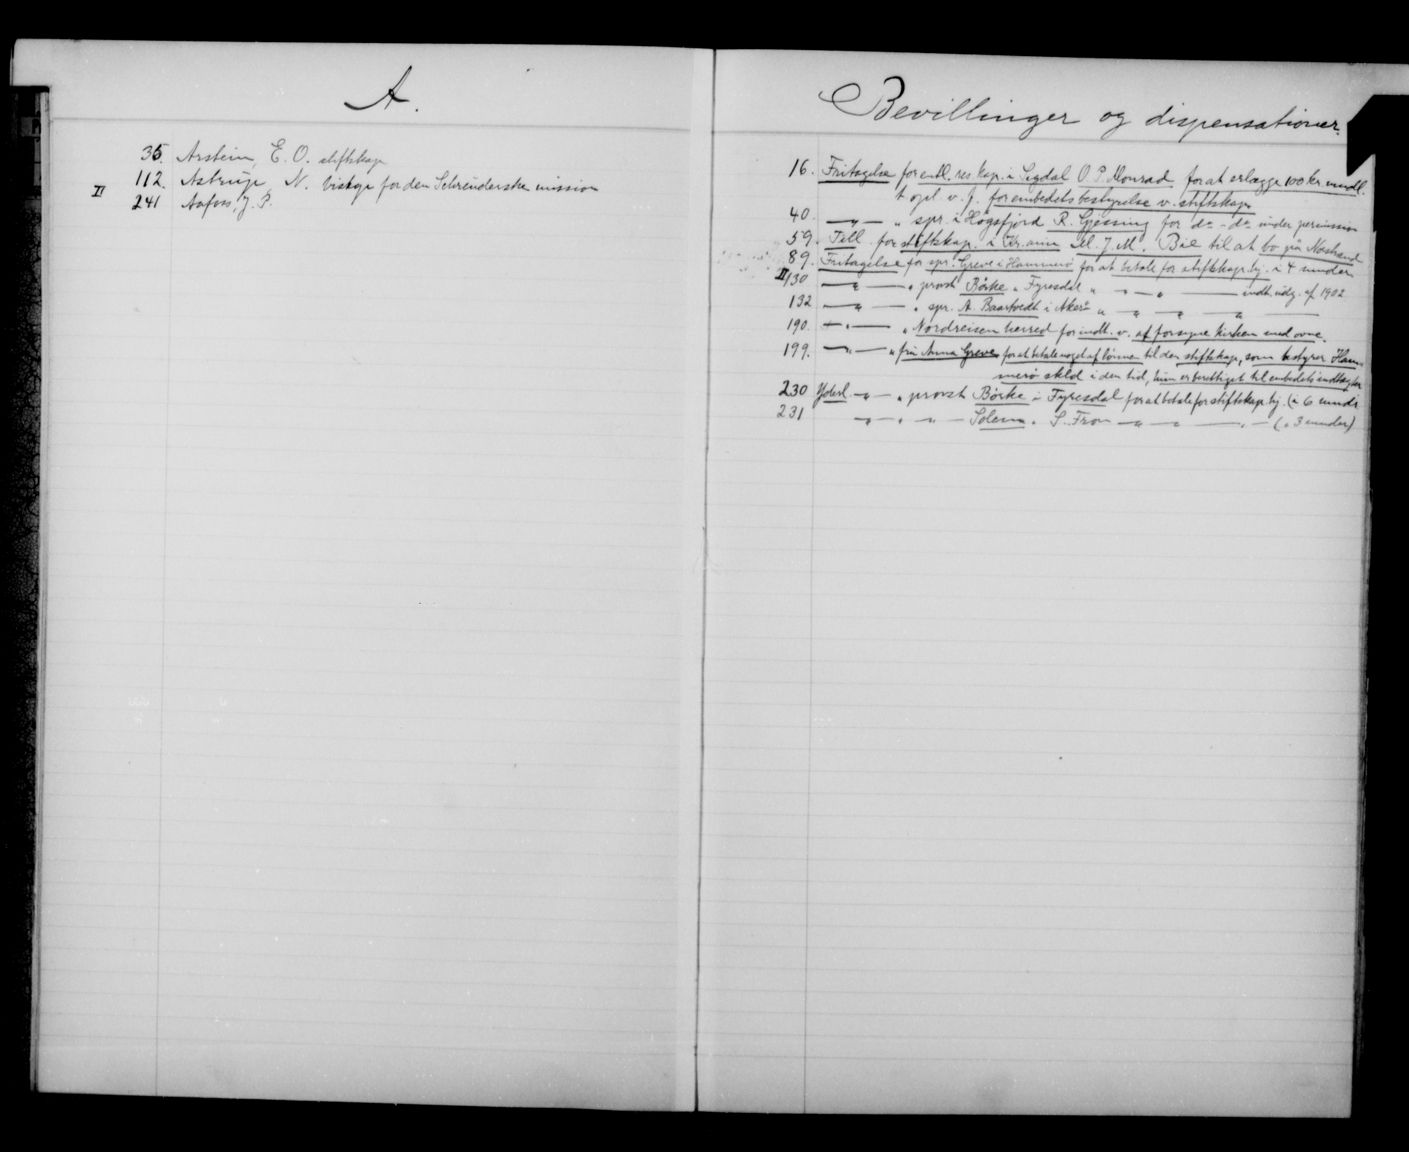 A.
35. Arstein, E. O. stiftskap
112. Astrup, N. biskop for den Schreuderske mission
II 241 Aafoss, J. P.
Bevillinger og dispensationer.
16. Fritagelse for endl. res. kap. i Sigdal O. P. Monrad for at erlægge 100 kr. mndl.
t. opl. v. f. for embedets bestyrelse v. stiftskap.
40. — „ — „ spr. i Høgsfjord R. Gjessing for do - do under permission
59. Till. for stiftskap. i Kr.ann M. J. M. Bie til at bo på Næstrand
89. Fritagelse for spr. Greve i Hammerø for at betale for stiftskap. hj. i 4 mnder
II 130 — „ — „ provst Børke „ Fyresdal „ — „ — „ — indt. udg. af 1902
132 — „ — „ spr. A. Baartvedt i Aker „ — „ — „ — „ —
190. — „ — „ Nordreisen herred for indt. v. at forsyne kirken med ovne.
199. — „ — „ fru Anna Greve for at betale noget af lønnen til den stiftskap, som bestyrer Ham-
merø skld i den tid, hun er berettiget til embedets indtægter
230 Yderl. — „ — „ provst Børke i Fyresdal for at betale for stiftskap. hj. (i 6 mndr
231 — „ — „ — „ — Solem „ S. Fron — „ — „ — „ — („ 3 mnder)